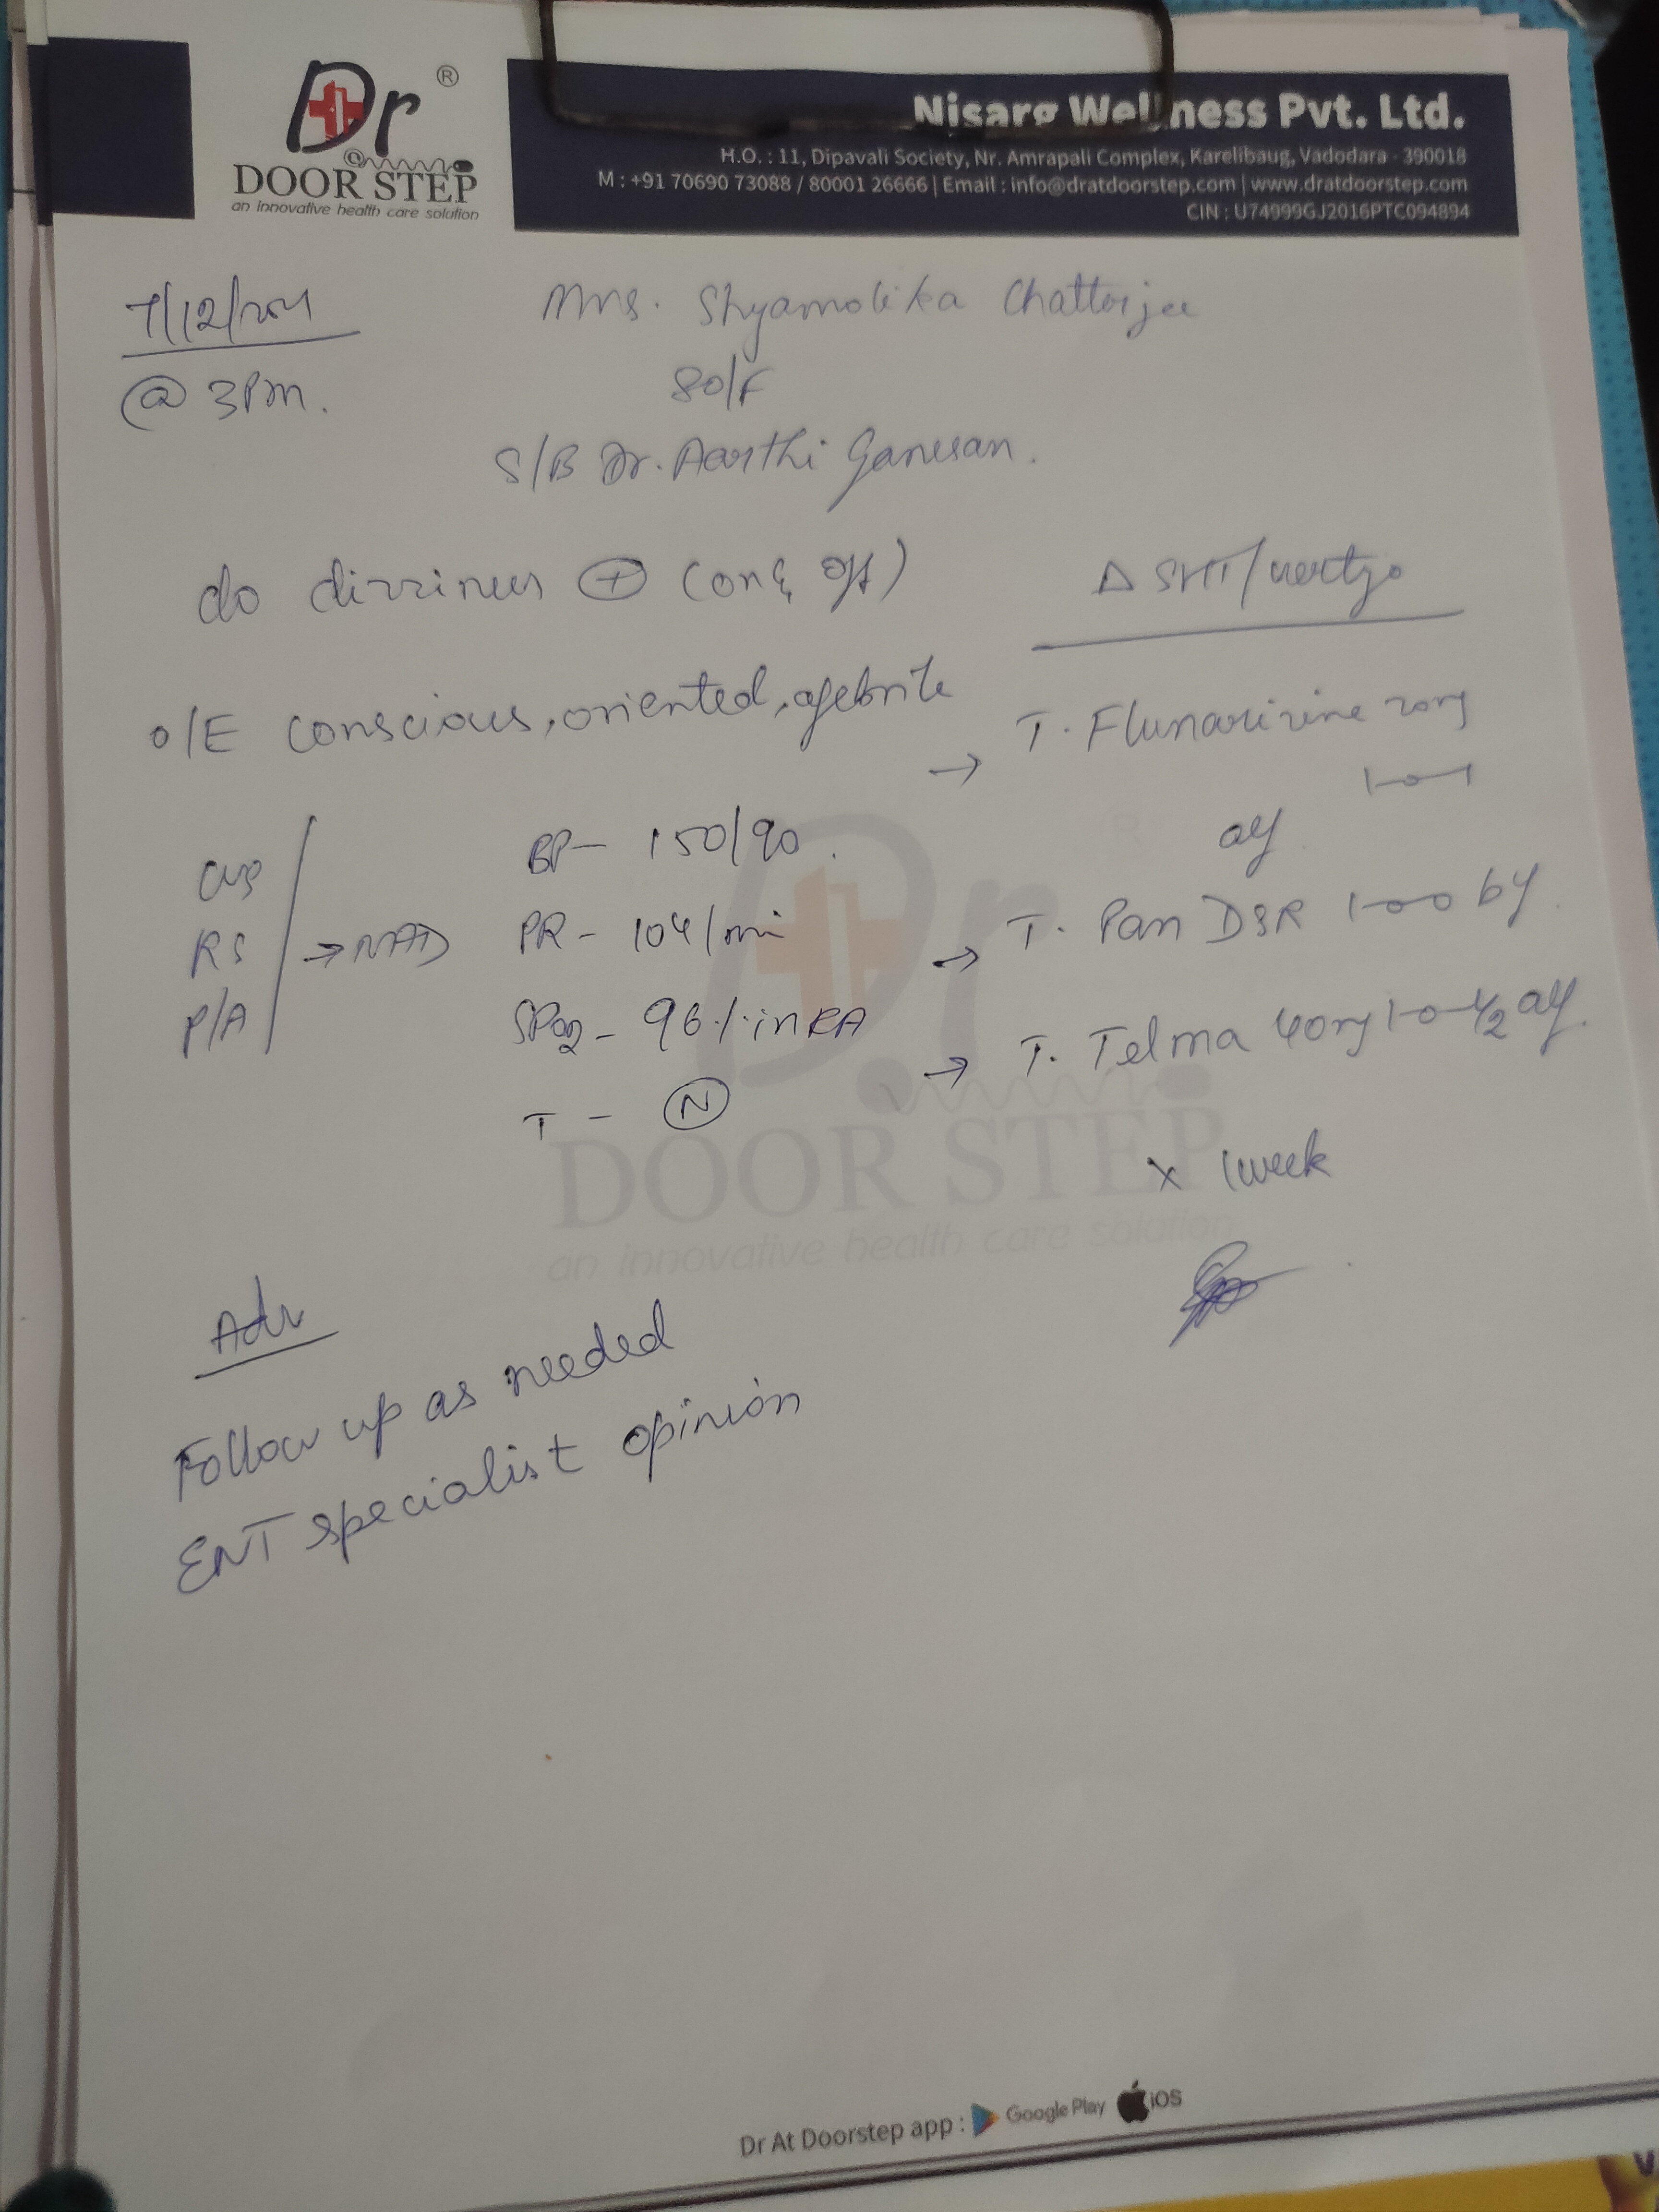 Dr ®
@
DOOR STEP
an innovative health care solution
Nisarg Wellness Pvt. Ltd.
H.O. : 11, Dipavali Society, Nr. Amrapali Complex, Karelibaug, Vadodara - 390018
M : +91 70690 73088 / 80001 26666 | Email : info@dratdoorstep.com | www.dratdoorstep.com
CIN : U74999GJ2016PTC094894
7/12/2021
@ 3Pm.
Mrs. Shyamolika Chatterjee
80/F
S/B Dr. Aarthi Ganesan.
c/o dizziness + (on & off)
O/E conscious, oriented, afebrile
CVS
RS
P/A
→ NAD
BP - 150/90.
PR - 104/min
SPO2 - 96% in RA
T - N
Δ SHT/vertigo
→ T. Flunarizine mg
1-0-1
af
→ T. Pan DSR 1-0-0 bf
→ T. Telma 40mg 1-0-1/2 af.
x 1 week
Adv
Follow up as needed
ENT specialist opinion
Dr
DOOR STEP
an innovative health care solution
Dr At Doorstep app : Google Play iOS